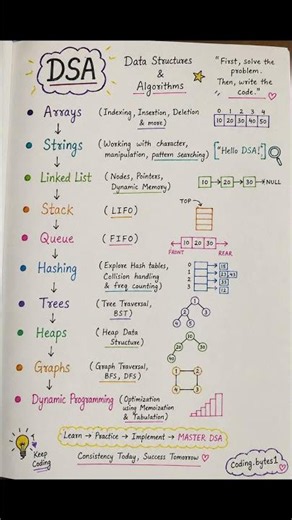 DSA
Data Structures
&
Algorithms
"First, solve the
problem.
Then, write the
code."
Arrays
(Indexing, Insertion, Deletion
& more)
0 1 2 3 4
10 20 30 40 50
Strings
(Working with character,
manipulation, pattern searching)
"Hello DSA!"
Linked List
(Nodes, Pointers,
Dynamic Memory)
10 20 30 NULL
Stack
(LIFO)
TOP
Queue
(FIFO)
10 20 30
FRONT REAR
Hashing
(Explore Hash tables,
Collision handing
& freq counting)
0
1
2
3
Trees
(Tree Traversal,
BST)
1
2 3
4 5
Heaps
(Heap Data
Structure)
Graphs
(Graph Traversal,
BFS, DFS)
1 2
4 3
Dynamic Programming
(Optimization
using Memoization
& Tabulation)
Learn → Practice → Implement → MASTER DSA
Keep
Coding
Consistency Today, Success Tomorrow
Coding.bytes1